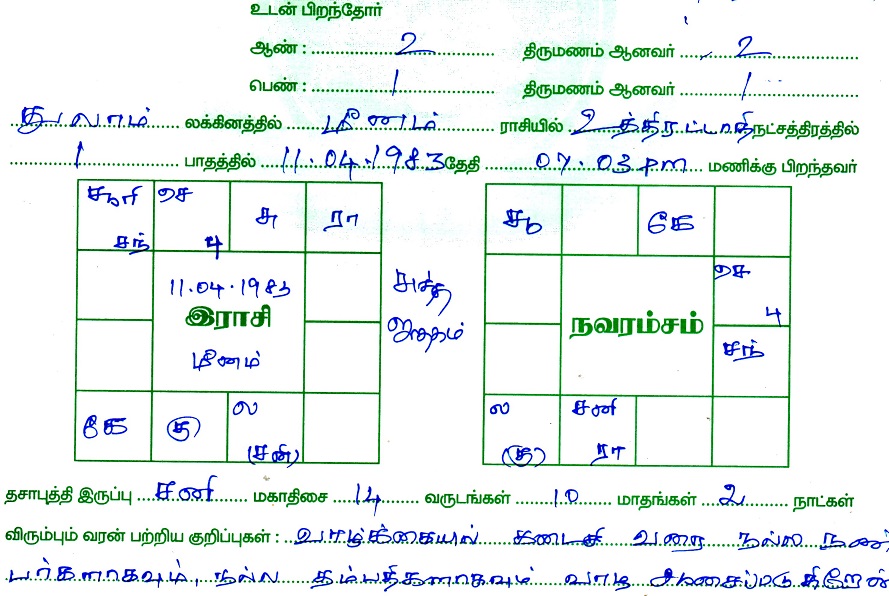 உடன் பிறந்தோர்
ஆண் : 2 திருமணம் ஆனவர் 2
பெண் : 1 திருமணம் ஆனவர் 1
துலாம் லக்கினத்தில் மீனம் ராசியில் உத்திரட்டாதி நட்சத்திரத்தில்
1 பாதத்தில் 11.04.1983 தேதி 07.03 PM மணிக்கு பிறந்தவர்
சூரி செ சு ரா
சந் பு
11.04.1983
இராசி
மீனம்
கே (கு) ல
(சனி)
சுத்த
ஜாதகம்
சூ கே
செ
பு
நவரம்சம்
சந்
ல சனி
(கு) ரா
தசாபுத்தி இருப்பு சனி மகாதிசை 14 வருடங்கள் 10 மாதங்கள் 2 நாட்கள்
விரும்பும் வரன் பற்றிய குறிப்புகள் : வாழ்க்கையில் கடைசி வரை நல்ல நண்
பர்களாகவும், நல்ல தம்பதிகளாகவும் வாழ ஆசைப்படுகிறேன்